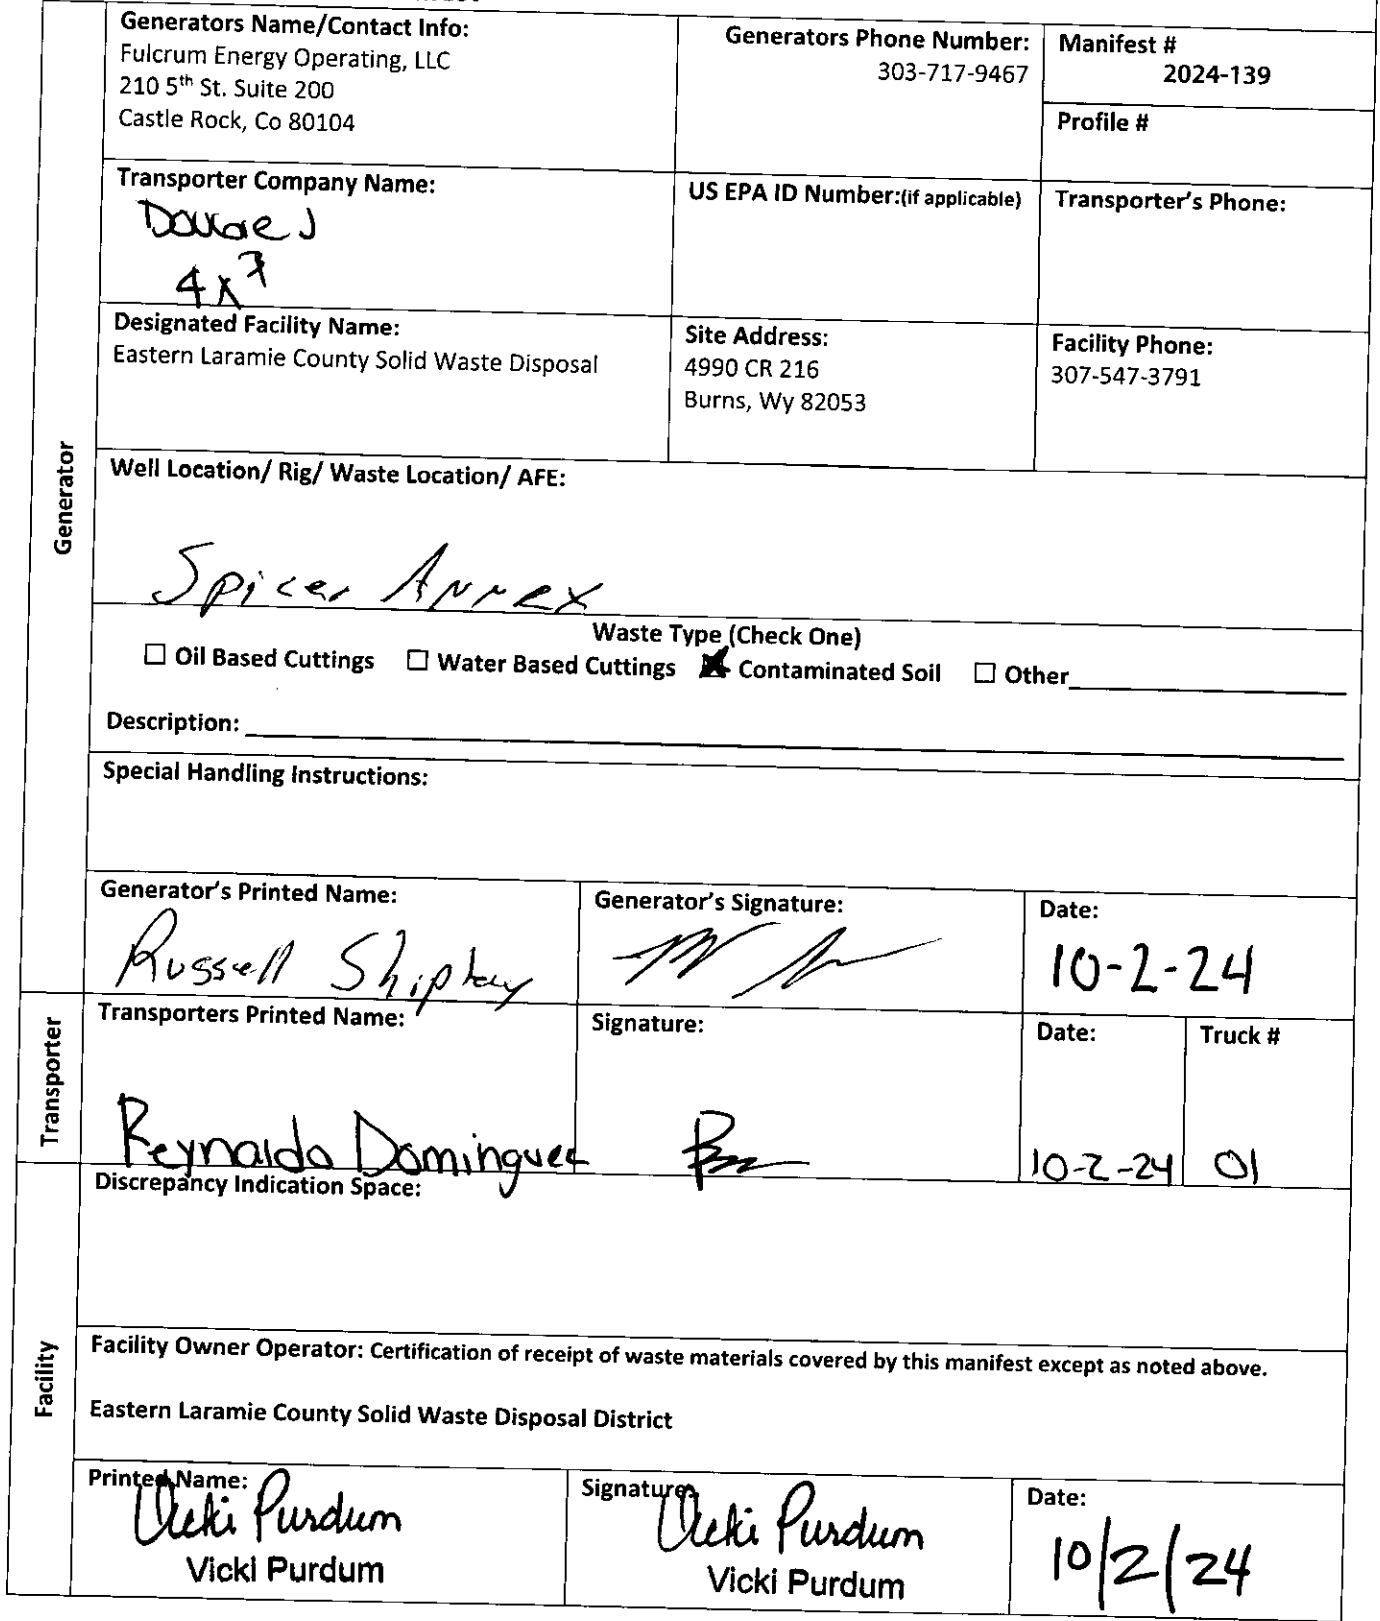 Generators Name/Contact Info:
Fulcrum Energy Operating, LLC
210 5th St. Suite 200
Castle Rock, Co 80104
Generators Phone Number:
303-717-9467
Manifest #
2024-139
Profile #
Transporter Company Name:
Double J
4x7
US EPA ID Number:(if applicable)
Transporter's Phone:
Designated Facility Name:
Eastern Laramie County Solid Waste Disposal
Site Address:
4990 CR 216
Burns, Wy 82053
Facility Phone:
307-547-3791
Generator
Well Location/ Rig/ Waste Location/ AFE:
Spicer Annex
Waste Type (Check One)
☐ Oil Based Cuttings ☐ Water Based Cuttings ☒ Contaminated Soil ☐ Other
Description:
Special Handling Instructions:
Generator's Printed Name:
Russell Shipley
Generator's Signature:
Date:
10-2-24
Transporter
Transporters Printed Name:
Reynaldo Dominguez
Signature:
Date:
10-2-24
Truck #
01
Facility
Discrepancy Indication Space:
Facility Owner Operator: Certification of receipt of waste materials covered by this manifest except as noted above.
Eastern Laramie County Solid Waste Disposal District
Printed Name:
Vicki Purdum
Vicki Purdum
Signature:
Vicki Purdum
Vicki Purdum
Date:
10/2/24